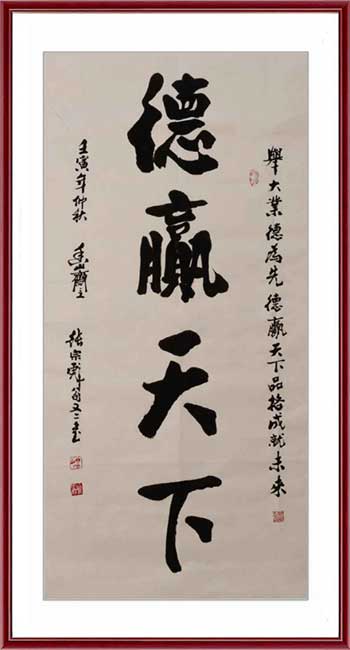 舉大業德為先德贏天下品格成就未來
德贏天下
壬寅年仲秋
張宗彪